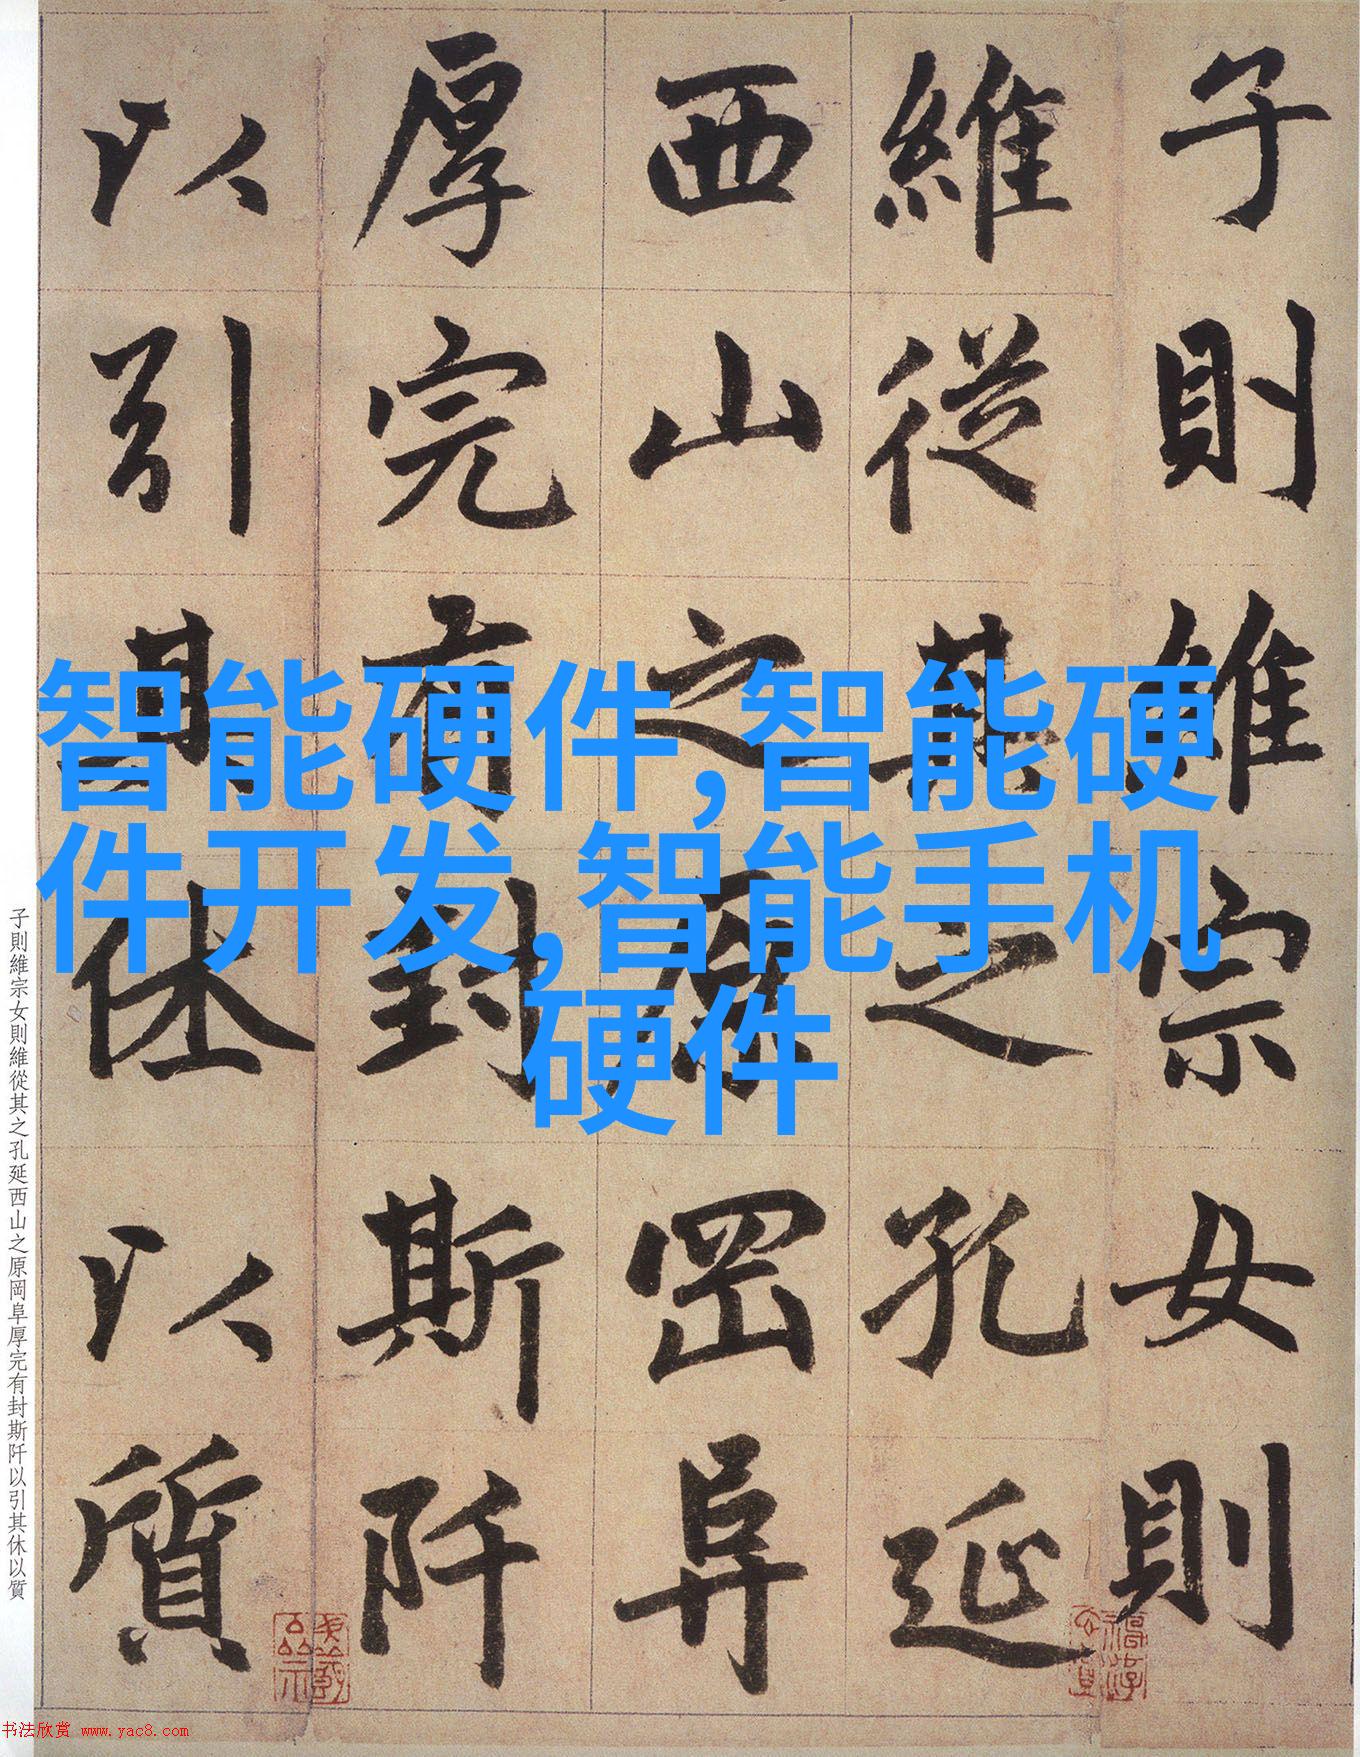 子則維宗女則
維從其之孔延
西山之原岡阜
厚完有封斯阡
以引其休以質
智能硬件,智能硬
件开发,智能手机
硬件
子則維宗女則維從其之孔延西山之原岡阜厚完有封斯阡以引其休以質
书法欣赏 www.yac8.com